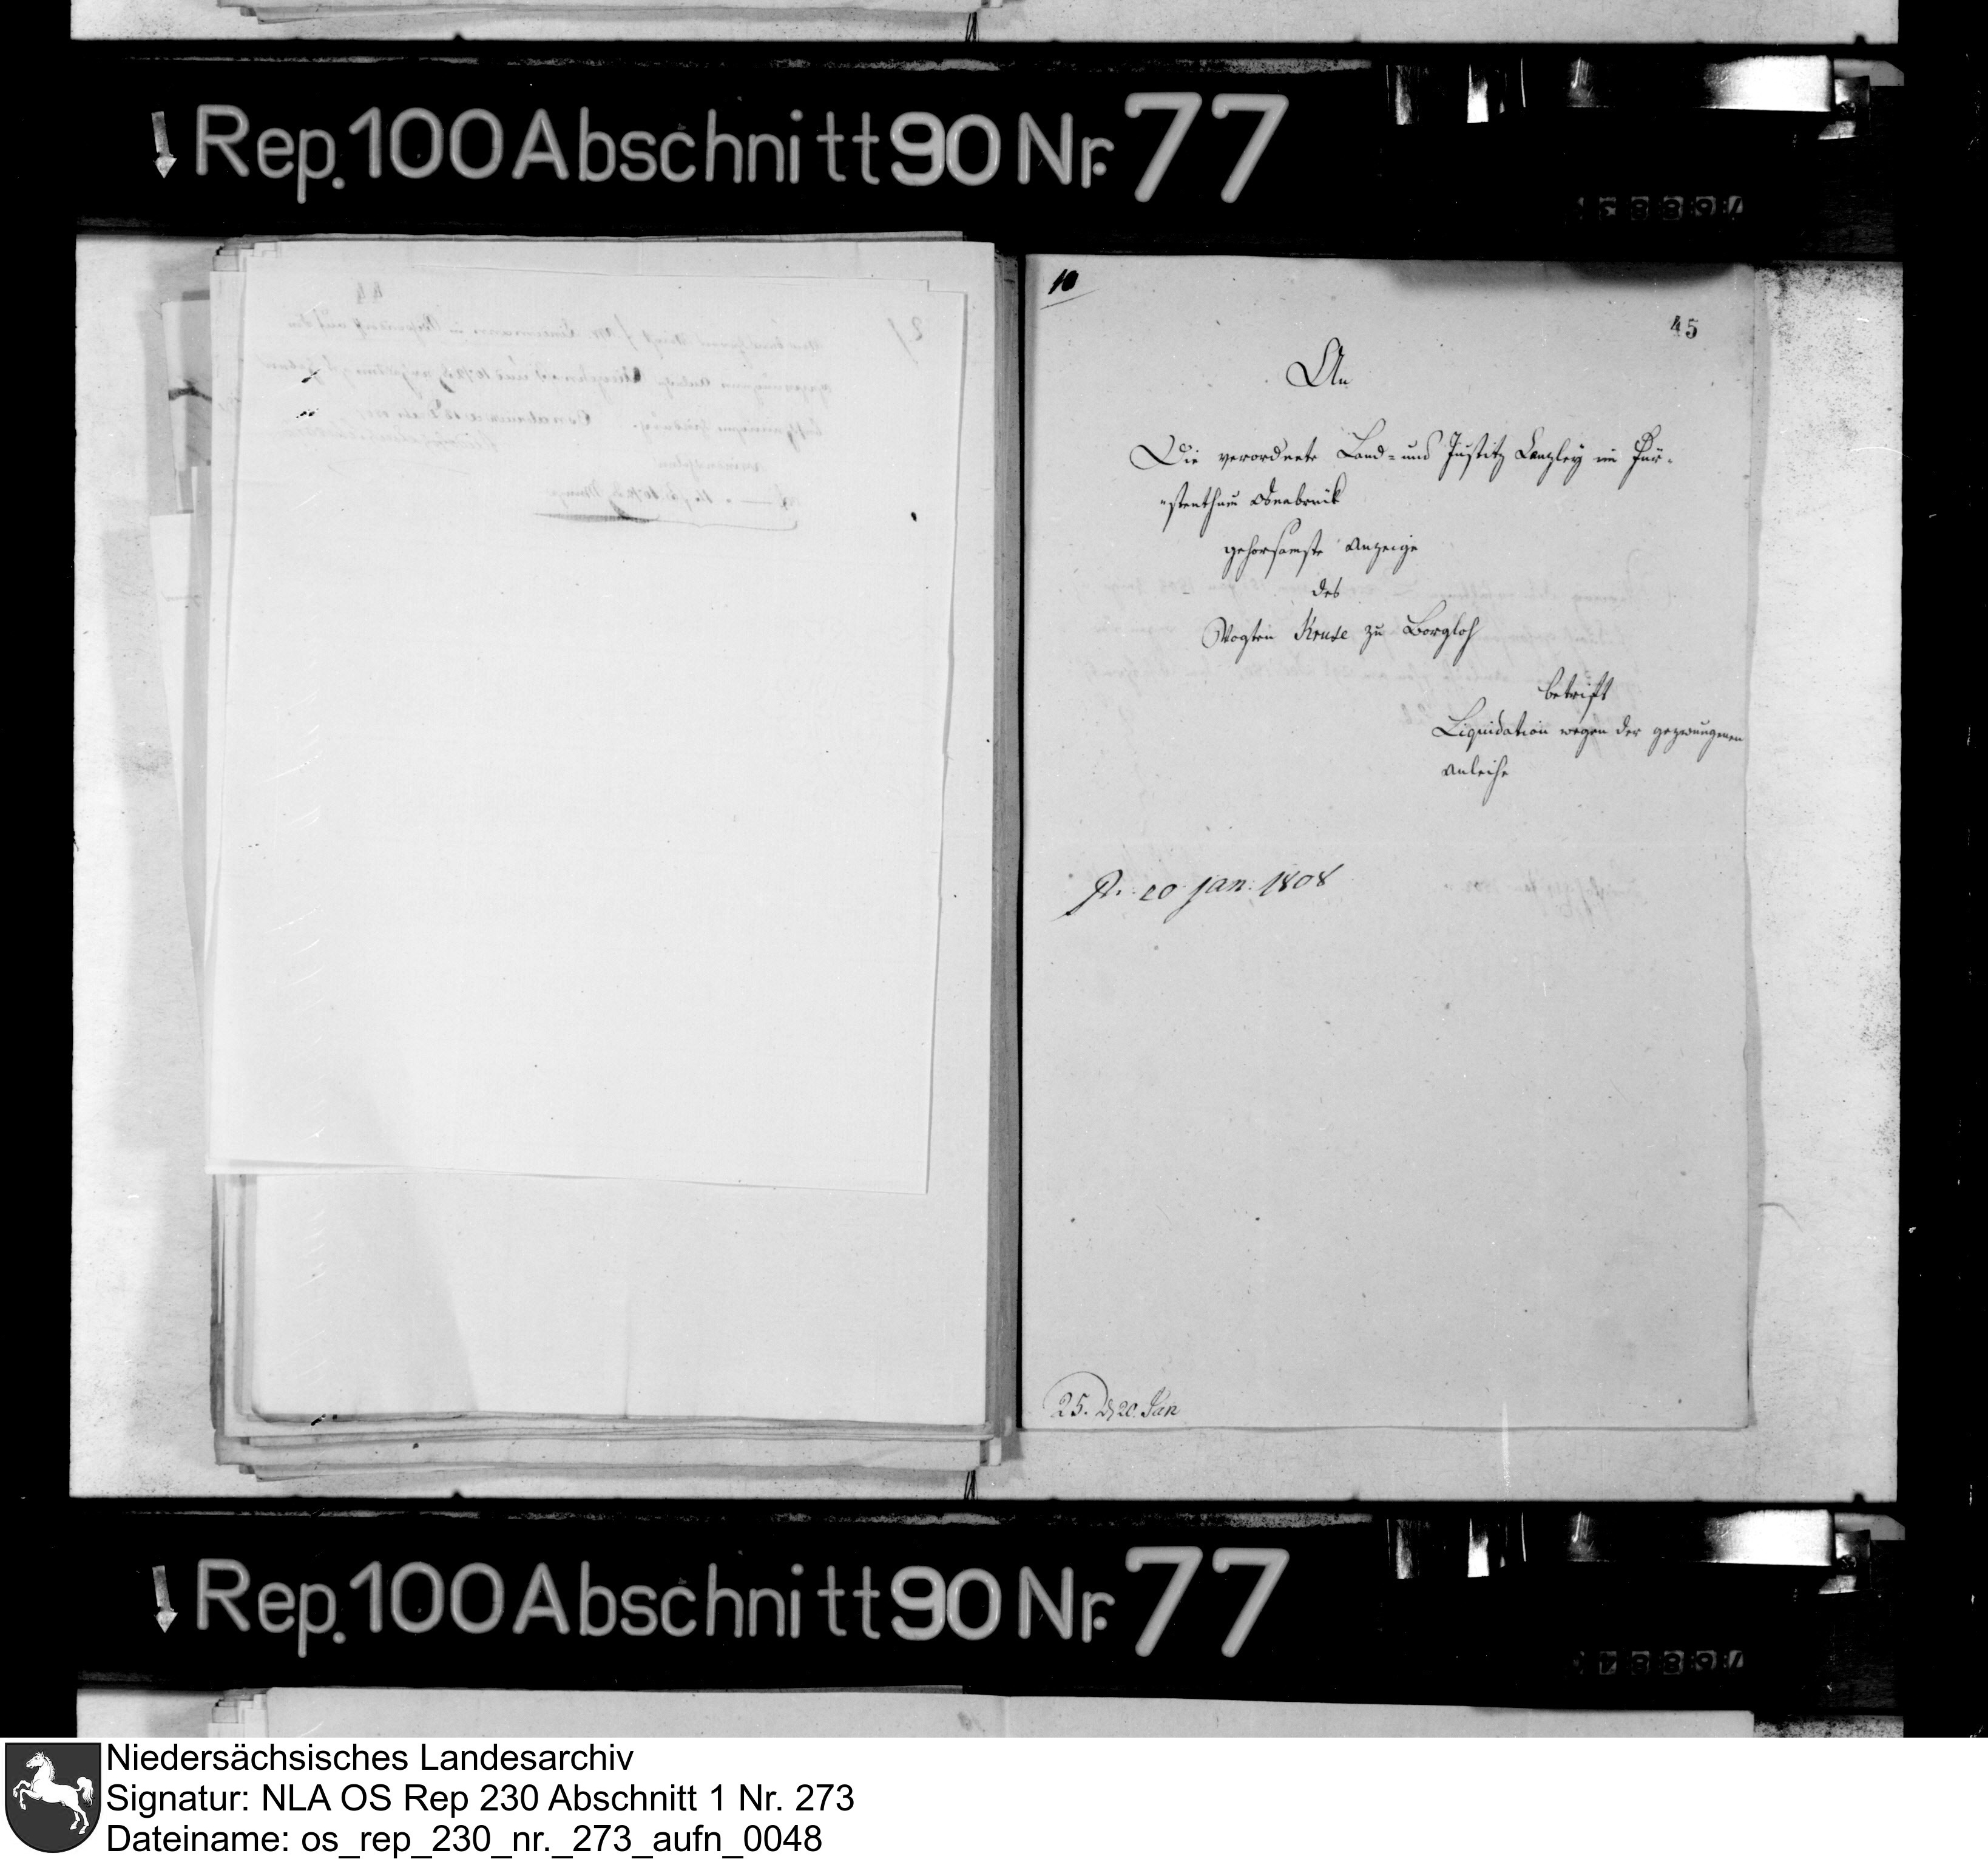 Rep. 100 Abschnitt 90 Nr. 77
10
45
An
Die verordnete Land= und Justitz Canzley im Für-
-stenthum Osnabrück
gehorsamste Anzeige
des
Vogten Kruse zu Borgloh
betrift
Liquidation wegen der gezwungenen
Anleihe
Pr. 20 jan. 1808
25. d 20. Jan
Rep. 100 Abschnitt 90 Nr. 77
Niedersächsisches Landesarchiv
Signatur: NLA OS Rep 230 Abschnitt 1 Nr. 273
Dateiname: os_rep_230_nr._273_aufn_0048